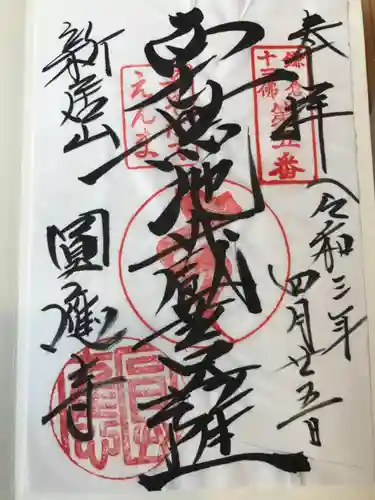 奉拝
令和三年四月廿五日
鎌倉
十三佛
第五番
南無地蔵菩薩
えんま
新居山
圓應寺